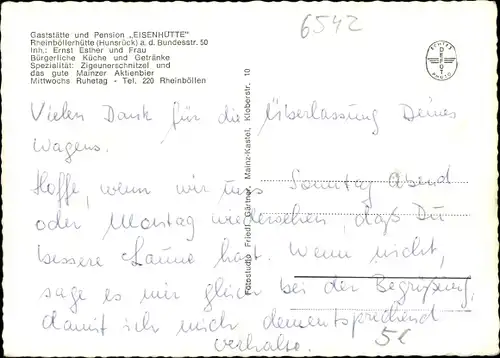 Gaststätte und Pension „EISENHÜTTE"
Rheinböllerhütte (Hunsrück) a. d. Bundesstr. 50
Inh.: Ernst Esther und Frau
Bürgerliche Küche und Getränke
Spezialität: Zigeunerschnitzel und
das gute Mainzer Aktienbier
Mittwochs Ruhetag - Tel. 220 Rheinböllen
6542
ECHTES
DEPOT
PHOTO
Fotostudio Friedl Gärtner, Mainz-Kastel, Kloberstr. 10
Vielen Dank für die Überlassung Deines
Wagens.
Hoffe, wenn wir uns Sonntag Abend
oder Montag wiedersehen, daß Du
bessere Laune hast. Wenn nicht,
sage es mir gleich bei der Begrüßung,
damit ich mich dementsprechend
verhalte.